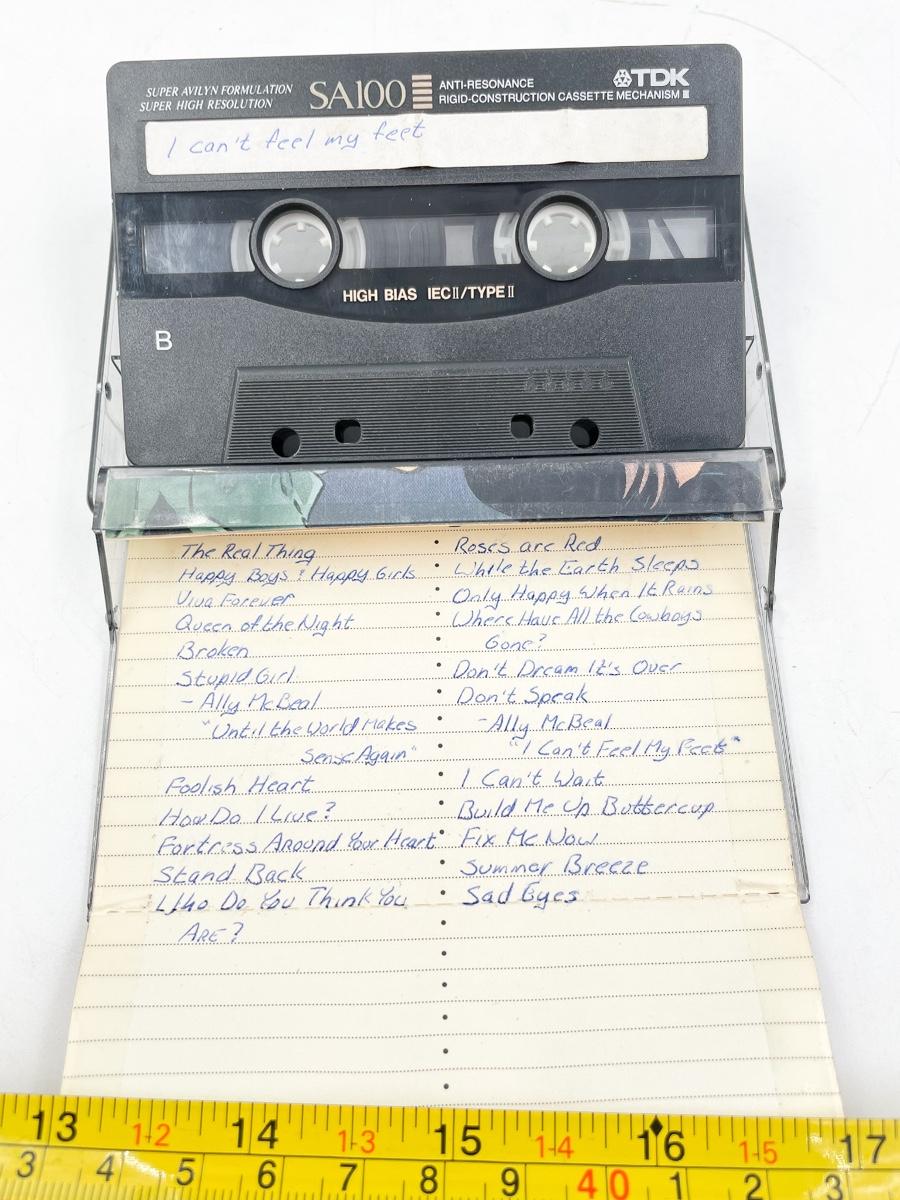 SUPER AVILYN FORMULATION
SUPER HIGH RESOLUTION
SA100
ANTI-RESONANCE
RIGID-CONSTRUCTION CASSETTE MECHANISM III
TDK
I can't feel my feet
HIGH BIAS IECII/TYPEII
B
The Real Thing
Happy Boys & Happy Girls
Viva Forever
Queen of the Night
Broken
Stupid Girl
- Ally McBeal
"Until the World Makes
Sense Again"
Foolish Heart
How Do I Live?
Fortress Around Your Heart
Stand Back
Who Do You Think You
ARE?
Roses are Red
While the Earth Sleeps
Only Happy When It Rains
Where Have All the Cowboys
Gone?
Don't Dream It's Over
Don't Speak
- Ally McBeal
"I Can't Feel My Feet"
I Can't Wait
Build Me Up Buttercup
Fix Me Now
Summer Breeze
Sad Eyes
13 1-2 14 1-3 15 1-4 16 1-5 17
3 4 5 6 7 8 9 40 1 2 3